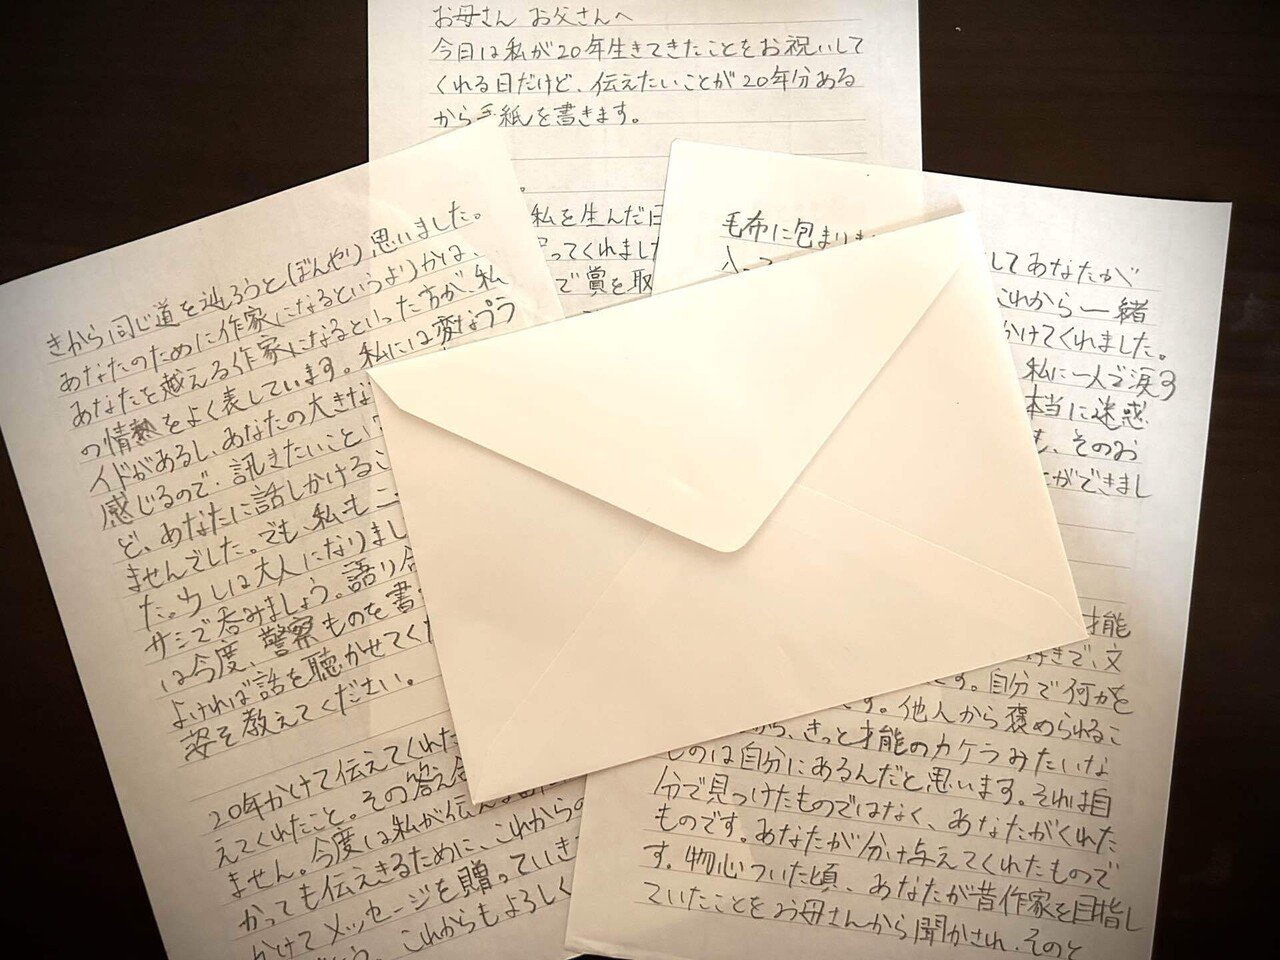 お母さん お父さんへ
今日は私が20年生きてきたことをお祝いして
くれる日だけど、伝えたいことが20年分ある
から手紙を書きます。
私を生んだ日
ってくれました
で賞を取
毛布に包まりま
してあなたが
これから一緒
かけてくれました。
私に一人で涙
本当に迷惑
、そのお
ができまし
才能
好きで、文
す。自分で何かを
です。他人から褒められるこ
から、きっと才能のカケラみたいな
ものは自分にあるんだと思います。それは自
分で見つけたものではなく、あなたがくれた
ものです。あなたが分け与えてくれたもので
す。物心ついた頃、あなたが昔作家を目指し
ていたことをお母さんから聞かされ、そのと
きから同じ道を辿ろうと(ぼんやり)思いました。
あなたのために作家になるというより かは、
あなたを越える作家になるといった方が、私
の情熱をよく表しています。私には変なプラ
イドがあるし、あなたの大きな
感じるので、訊きたいことい
ど、あなたに話しかけるこ
ませんでした。でも、私もこ
た。少しは大人になりまし
サシで呑みましょう。語り合
は今度、警察ものを書
よければ話を聴かせてくだ
姿を教えてください。
20年かけて伝えてくれた
えてくれたこと。その答え合
ません。今度は私が伝える
かっても伝えきるために、これからの
かけてメッセージを贈っていき
う。これからもよろしく